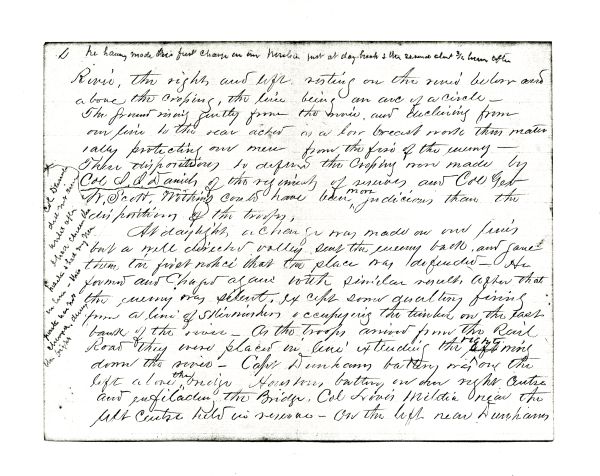 he having made his first charge on our line just at day break & the second about 3/4 hour after
River, the right and left resting on the river below and
above the crossing, the line being an arc of a circle –
The ground rising gently from the river, and declining from
our line to the rear acted as a low breast work thus mater
ially protecting our men from the fire of the enemy –
These dispositions to defend the crossing were made by
Col J. J. Daniels of the regiment of reserves and Col Geo
W. Scott. Nothing could have been more judicious than the
dispositions of the troops.
At daylight a charge was made on our lines
but a well directed volley sent the enemy back, and gave
them the first notice that the place was defended – He
formed and charged again with similar results after that
the enemy was silent, except some desultory firing
from a line of Skirmishers occupying the timber on the East
bank of the river – As the troops arrived from the Rail
Road they were placed in line extending the right wing
down the river – Capt Dunhams battery was on the
left above the bridge, Houstouns battery on our right Centre
and enfilading the Bridge, Col Loves Militia near the
left Centre held in reserve – On the left near Dunhams
Col Daniels
did not arrive
until after
these charges
made & had no men
in line – this
attack was not